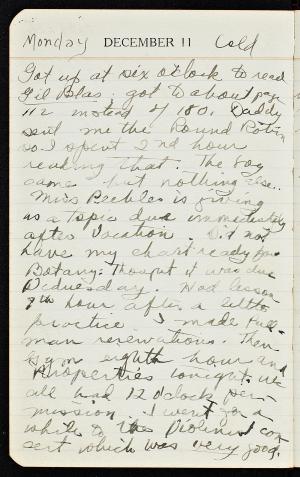 Monday DECEMBER 11 Cold
Got up at six o'clock to read
Gil Blas. got to about page
112 instead of 180. Daddy
sent me the Round Robin
so I spent 2nd hour
reading that. The
came but nothing else.
Miss Peebles is giving
us a topic due immediately
after vacation. Did not
have my chart ready for
Botany: Thought it was due
Wednesday. Had lesson
7th hour after a little
practice I made Pull-
man reservations. Then
Gym eighth hour and
Properties tonight. We
all had 12 o'clock per-
mission. I went for a
while to the Violinist con
cert which was very good.